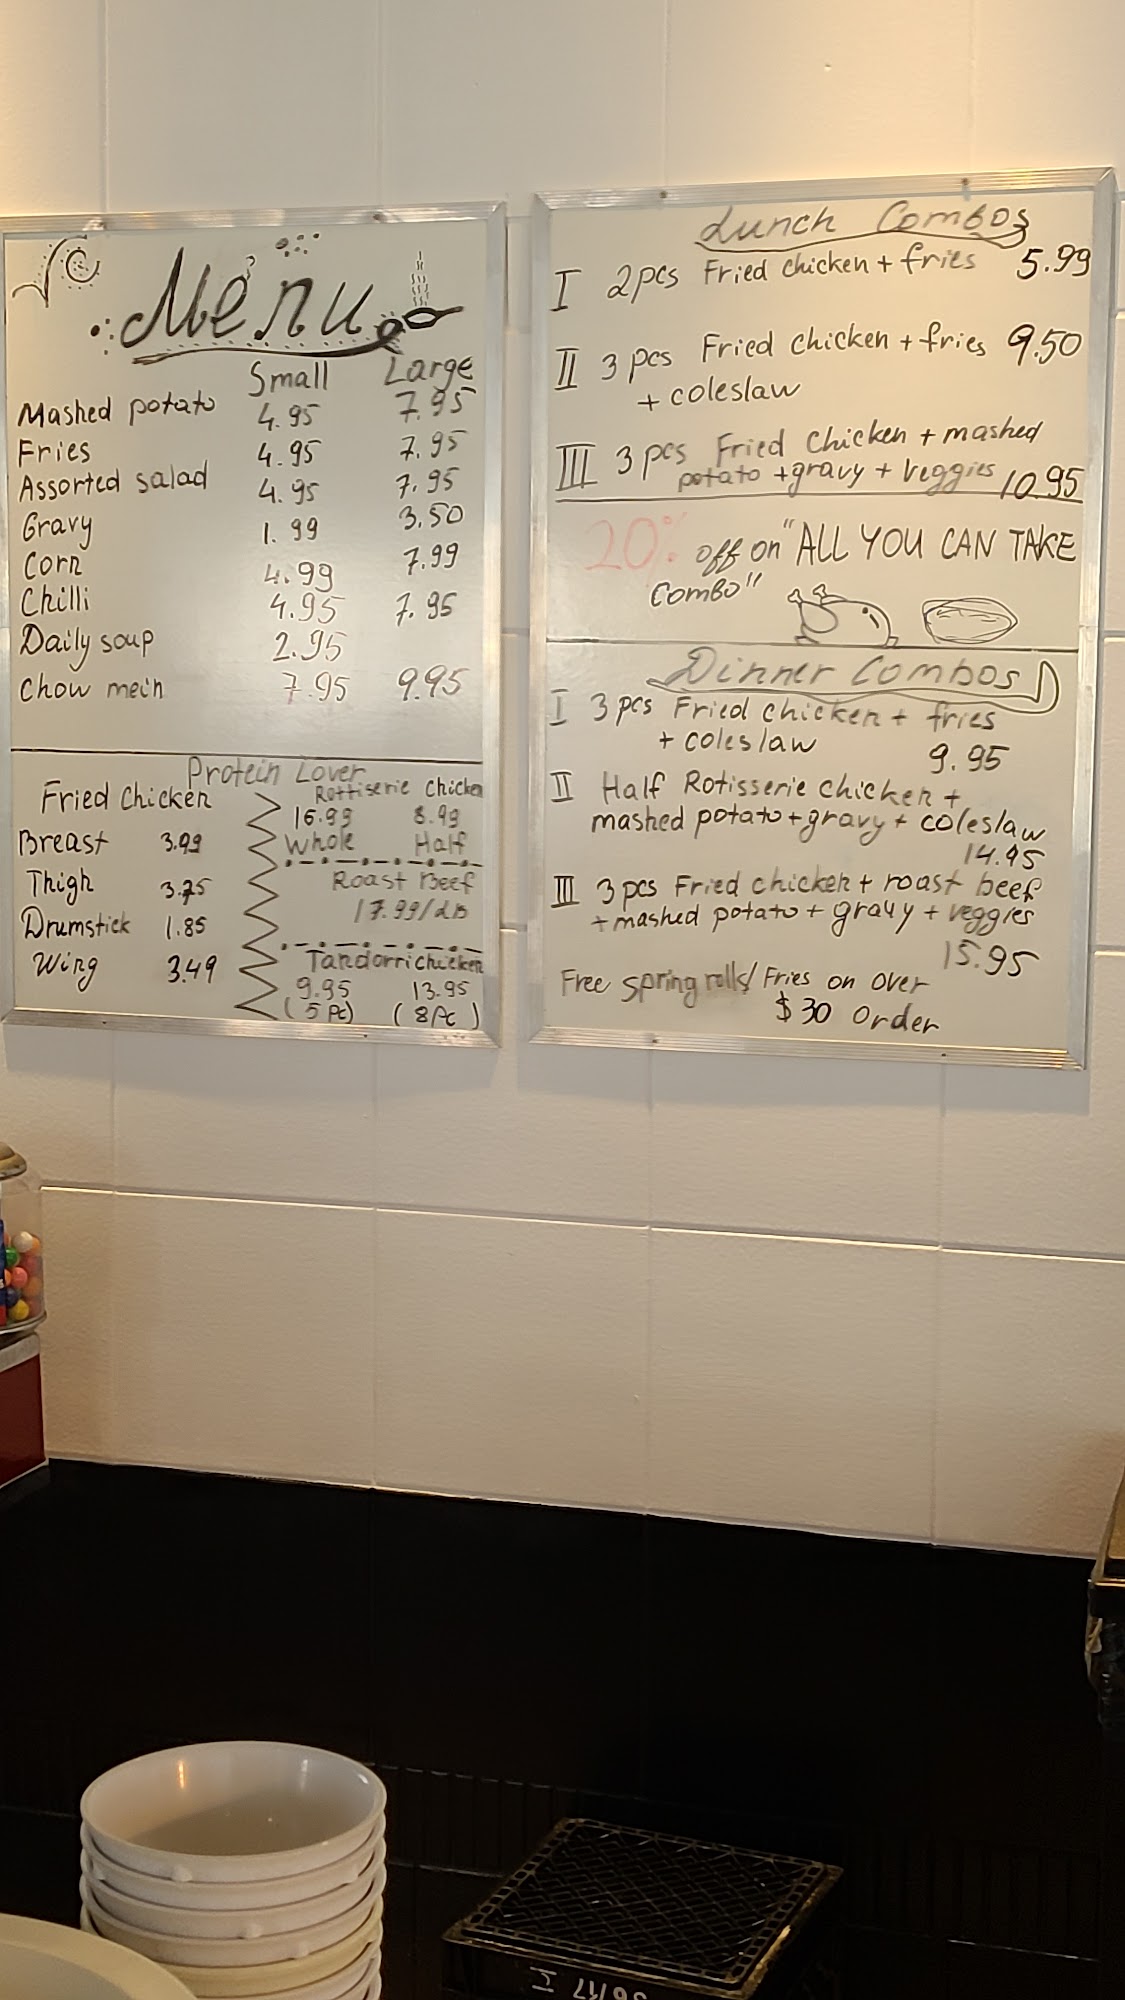 Menu
Small Large
Mashed potato 4.95 7.95
Fries 4.95 7.95
Assorted salad 4.95 7.95
Gravy 1.99 3.50
Corn 4.99 7.99
Chilli 4.95 7.95
Daily soup 2.95
Chow mein 7.95 9.95
Protein Lover
Fried Chicken
Breast 3.99
Thigh 3.75
Drumstick 1.85
Wing 3.49
Rottiserie Chicken
16.99 8.99
Whole Half
Roast Beef
17.99/LB
Tandorri chicken
9.95 13.95
(5 Pc) (8 Pc)
Lunch Combos
I 2 pcs Fried chicken + fries 5.99
II 3 pcs Fried chicken + fries 9.50
+ coleslaw
III 3 pcs Fried Chicken + mashed
potato + gravy + veggies 10.95
20% off on "ALL YOU CAN TAKE
Combo"
Dinner Combos
I 3 pcs Fried chicken + fries
+ coleslaw 9.95
II Half Rotisserie chicken +
mashed potato + gravy + coleslaw
14.95
III 3 pcs Fried chicken + roast beef
+ mashed potato + gravy + veggies
15.95
Free spring rolls/Fries on over
$30 Order